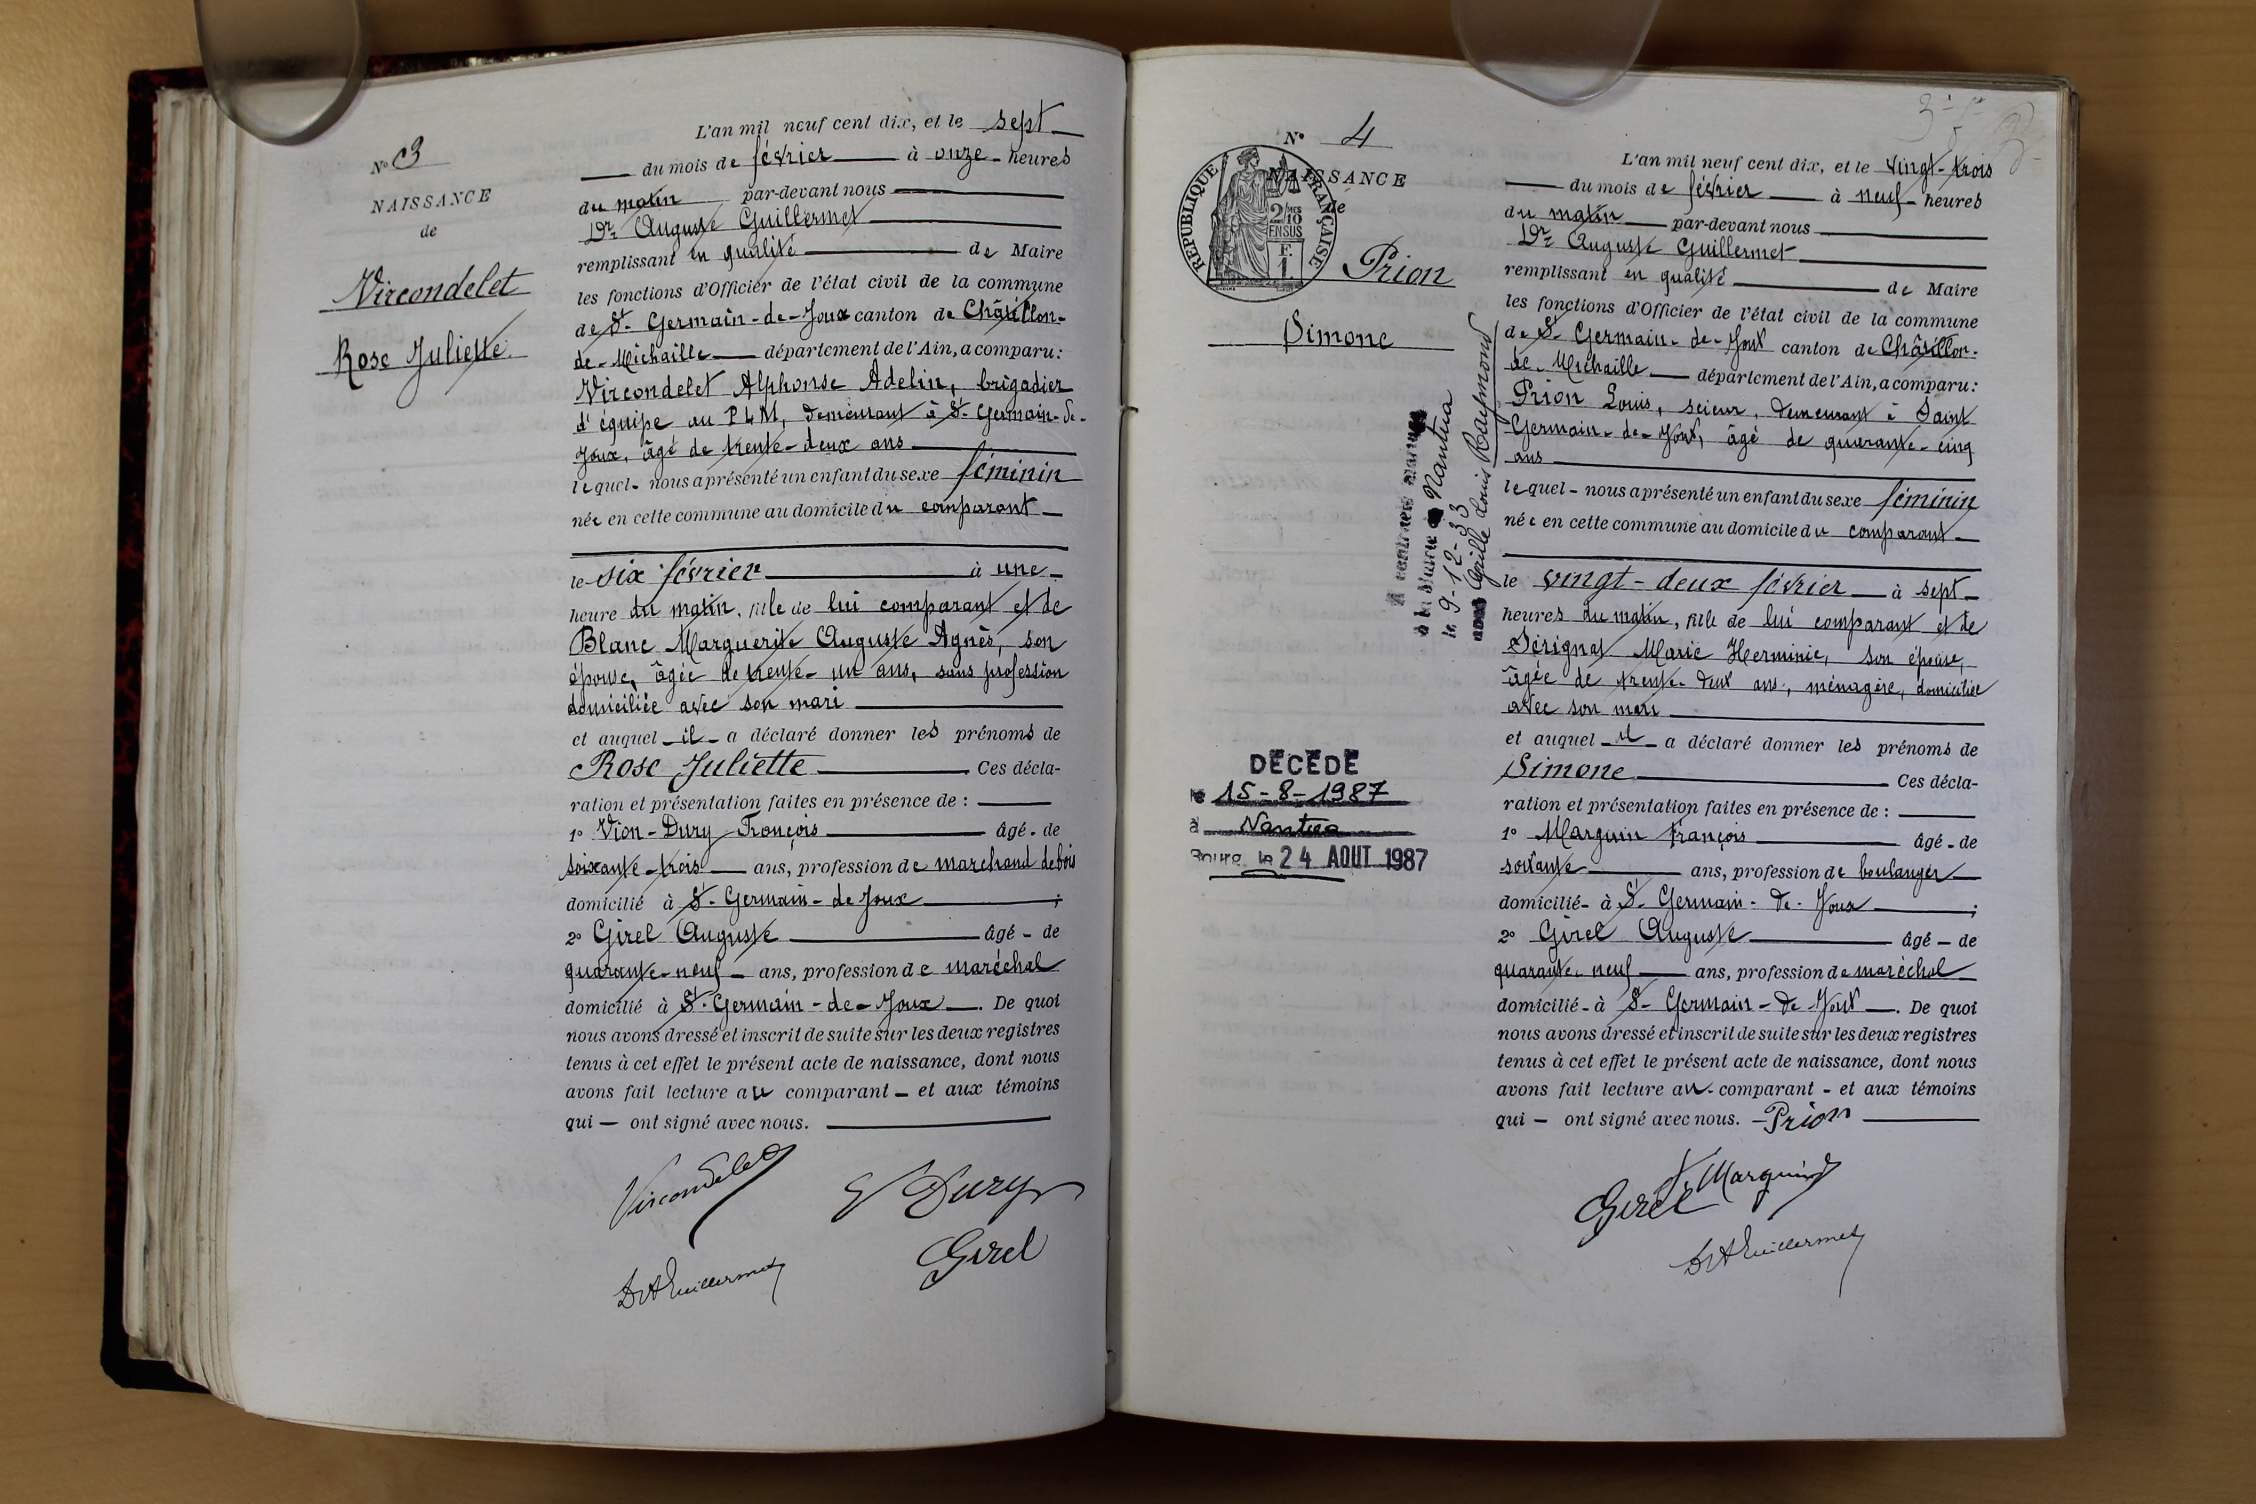 N° 3
NAISSANCE
de
Vircondelet
Rose Juliette
L'an mil neuf cent dix, et le sept
du mois de février à onze heures
du matin par-devant nous
Dr Auguste Guillermet
remplissant en qualité de Maire
les fonctions d'Officier de l'état civil de la commune
de St-Germain-de-Joux canton de Châtillon-
de-Michaille département de l'Ain, a comparu:
Vircondelet Alphonse Adelin, brigadier
d'équipe au PLM, demeurant à St-Germain-de-
Joux, âgé de trente-deux ans
lequel nous a présenté un enfant du sexe féminin
née en cette commune au domicile du comparant
le six février à une
heure du matin, fille de lui comparant et de
Blanc Marguerite Auguste Agnès, son
épouse, âgée de trente-un ans, sans profession
domiciliée avec son mari
et auquel il a déclaré donner les prénoms de
Rose Juliette Ces décla-
ration et présentation faites en présence de :
1° Vion-Dury François âgé de
soixante-trois ans, profession de marchand de bois
domicilié à St-Germain-de Joux ;
2° Girel Auguste âgé de
quarante-neuf ans, profession de maréchal
domicilié à St-Germain-de-Joux. De quoi
nous avons dressé et inscrit de suite sur les deux registres
tenus à cet effet le présent acte de naissance, dont nous
avons fait lecture au comparant et aux témoins
qui ont signé avec nous.
Vircondelet
V Dury
Girel
Dr A Guillermet
N° 4
NAISSANCE
de
RÉPUBLIQUE FRANÇAISE
2/10 EN SUS
F. 1
Prion
Simone
à la Mairie Nantua
le 9-12-33
avec Louis Raymond
DÉCÉDÉ
le 15-8-1987
à Nantua
Bourg le 24 AOUT 1987
L'an mil neuf cent dix, et le vingt-trois
du mois de février à neuf heures
du matin par-devant nous
Dr Auguste Guillermet
remplissant en qualité de Maire
les fonctions d'Officier de l'état civil de la commune
de St-Germain-de-Joux canton de Châtillon-
de-Michaille département de l'Ain, a comparu:
Prion Louis, scieur, demeurant à Saint
Germain-de-Joux, âgé de quarante-cinq
ans
lequel nous a présenté un enfant du sexe féminin
née en cette commune au domicile du comparant
le vingt-deux février à sept
heures du matin, fille de lui comparant et de
Sérignat Marie Herminie, son épouse,
âgée de trente-deux ans, ménagère, domiciliée
avec son mari
et auquel il a déclaré donner les prénoms de
Simone Ces décla-
ration et présentation faites en présence de :
1° Marquin François âgé de
soixante ans, profession de boulanger
domicilié à St-Germain-de-Joux ;
2° Girel Auguste âgé de
quarante-neuf ans, profession de maréchal
domicilié à St-Germain-de Joux. De quoi
nous avons dressé et inscrit de suite sur les deux registres
tenus à cet effet le présent acte de naissance, dont nous
avons fait lecture au comparant et aux témoins
qui ont signé avec nous. Prion
Fr Marquin
Girel
Dr A Guillermet